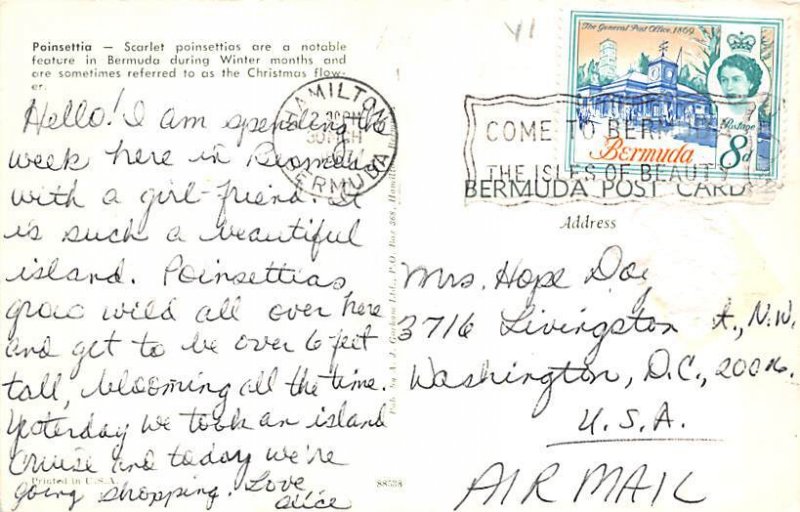 Poinsettia — Scarlet poinsettias are a notable
feature in Bermuda during Winter months and
are sometimes referred to as the Christmas flow-
er.
Hello! I am spending the
week here in Bermuda
with a girl-friend. It
is such a beautiful
island. Poinsettias
grow wild all over here
and get to be over 6 feet
tall, blooming all the time.
Yesterday we took an island
cruise and today we're
going shopping. Love,
Alice
Printed in U.S.A.
88538
HAMILTON
BERMUDA
The General Post Office, 1869
Postage
Bermuda
8d
COME TO BERM
THE ISLES OF BEAUTY
BERMUDA POST CARD
Address
Mrs. Hope Doe
3716 Livingston St., N.W.
Washington, D.C., 20016.
U.S.A.
AIR MAIL